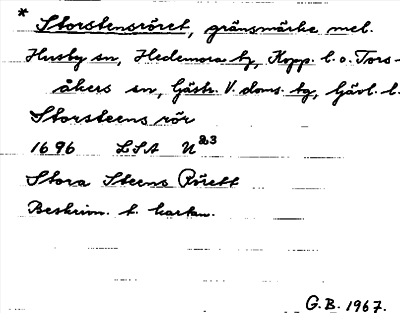 * Storstensröret, gränsmärke mel.
Husby sn, Hedemora tg, Kopp. l. o. Tors-
åkers sn, Gästr. V. doms. tg, Gävl. l.
Storsteens rör
1696 LSA U²³
Stora Steens Rörett
Beskrivn. t. kartan.
G.B. 1967.